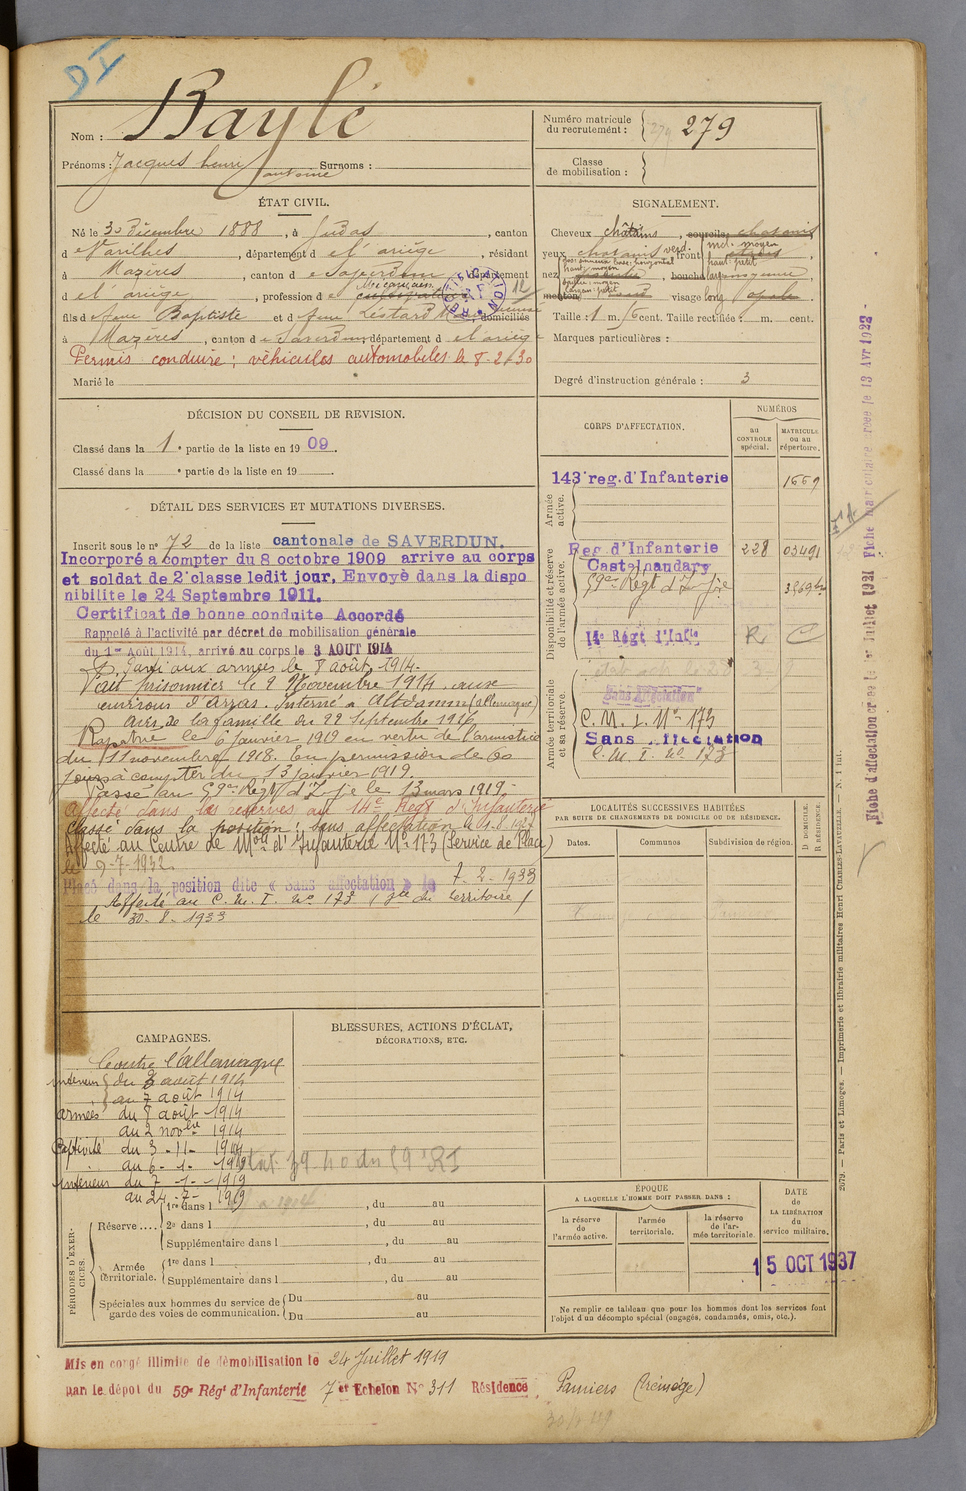 DI
Nom : Baylé
Numéro matricule du recrutement : 279
Prénoms : Jacques henri antoine Surnoms :
Classe de mobilisation :
ÉTAT CIVIL.
Né le 30 Décembre 1888, à Ludas, canton
d e Varilhes, département d e l'ariège, résidant
à Mazères, canton d e Saverdun, département
d e l'ariège, profession de Mécanicien
fils d e feu Baptiste et d e feu Lestard, domiciliés
à Mazères, canton d e Saverdun département d e l'ariège
RECTIFICATION
Permis conduire : véhicules automobiles le 8-2-30
Marié le
SIGNALEMENT.
Cheveux châtains, sourcils châtains
yeux chatains verd. front
incl. moyen
haut. petit
nez, bouche moyenne
menton visage long ovale
Taille : 1 m. cent. Taille rectifiée : m. cent.
Marques particulières :
Degré d'instruction générale : 3
DÉCISION DU CONSEIL DE REVISION.
Classé dans la 1e partie de la liste en 1909.
Classé dans la e partie de la liste en 19 .
DÉTAIL DES SERVICES ET MUTATIONS DIVERSES.
Inscrit sous le no 72 de la liste cantonale de SAVERDUN.
Incorporé a compter du 8 octobre 1909 arrive au corps
et soldat de 2e classe ledit jour, Envoyè dans la dispo
nibilite le 24 Septembre 1911.
Certificat de bonne conduite Accordé
Rappelé à l'activité par décret de mobilisation générale
du 1er Août 1914, arrivé au corps le 3 AOUT 1914
Parti aux armées le 8 août 1914.
Fait prisonnier le 2 Novembre 1914, aux
environs d'arras. Interné a Altdamm (allemagne)
avis de la famille du 22 Septembre 1916
Rapatrié le 6 janvier 1919 en vertu de l'armistice
du 11 novembre 1918. En permission de 60
jours à compter du 13 janvier 1919.
Passé au 59e Régt d'Ife le 13 mars 1919.
Affecté dans les réserves au 14e Régt d'Infanterie
Classé dans la position : sans affectation le 1.8.1927
Affecté au Centre de Mon d'Infanterie No 173 (Service de Place)
le 9-7-1932.
Placé dans la position dite « Sans affectation » le 7-2-1933
Affecté au C. M. I. no 173 (gde du territoire)
le 30-8-1933
CORPS D'AFFECTATION.
NUMÉROS
au CONTROLE spécial.
MATRICULE ou au répertoire.
Armée active.
143e reg. d'Infanterie 1669
Disponibilité et réserve de l'armée active.
Reg. d'Infanterie Castelnaudary 228 03491
59e Régt d'Ife
14e Régt d'Infie R C
Armée territoriale et sa réserve.
Sans Affectation
C. M. I. No 173
Sans Affectation
C. M. I. no 173
LOCALITÉS SUCCESSIVES HABITÉES
PAR SUITE DE CHANGEMENTS DE DOMICILE OU DE RÉSIDENCE.
Dates. Communes Subdivision de région.
D DOMICILE.
R RÉSIDENCE.
CAMPAGNES.
Contre l'allemagne
intérieur du 3 août 1914
au 7 août 1914
armées du 8 août 1914
au 2 novbre 1914
Captivité du 3-11-1914
au 6-1-1919
intérieur du 7-1-1919
au 24-7-1919
BLESSURES, ACTIONS D'ÉCLAT,
DÉCORATIONS, ETC.
PÉRIODES D'EXERCICES.
Réserve .... 1re dans l , du au
2e dans l , du au
Supplémentaire dans l , du au
Armée territoriale. 1re dans l , du au
Supplémentaire dans l , du au
Spéciales aux hommes du service de garde des voies de communication. Du au
Du au
ÉPOQUE
A LAQUELLE L'HOMME DOIT PASSER DANS :
la réserve de l'armée active.
l'armée territoriale.
la réserve de l'armée territoriale.
DATE de LA LIBÉRATION du service militaire.
15 OCT 1937
Ne remplir ce tableau que pour les hommes dont les services font
l'objet d'un décompte spécial (engagés, condamnés, omis, etc.).
Mis en congé illimité de démobilisation le 24 Juillet 1919
par le dépot du 59e Régt d'Infanterie 7e Echelon No 311 Résidence Pamiers (Ariège)
2679. — Paris et Limoges. — Imprimerie et librairie militaires Henri CHARLES-LAVAUZELLE. — N. 1 int.
Fiche d'affectation créée le 1er Juillet 1921 Fiche matriculaire créée le 13 Avr 1923